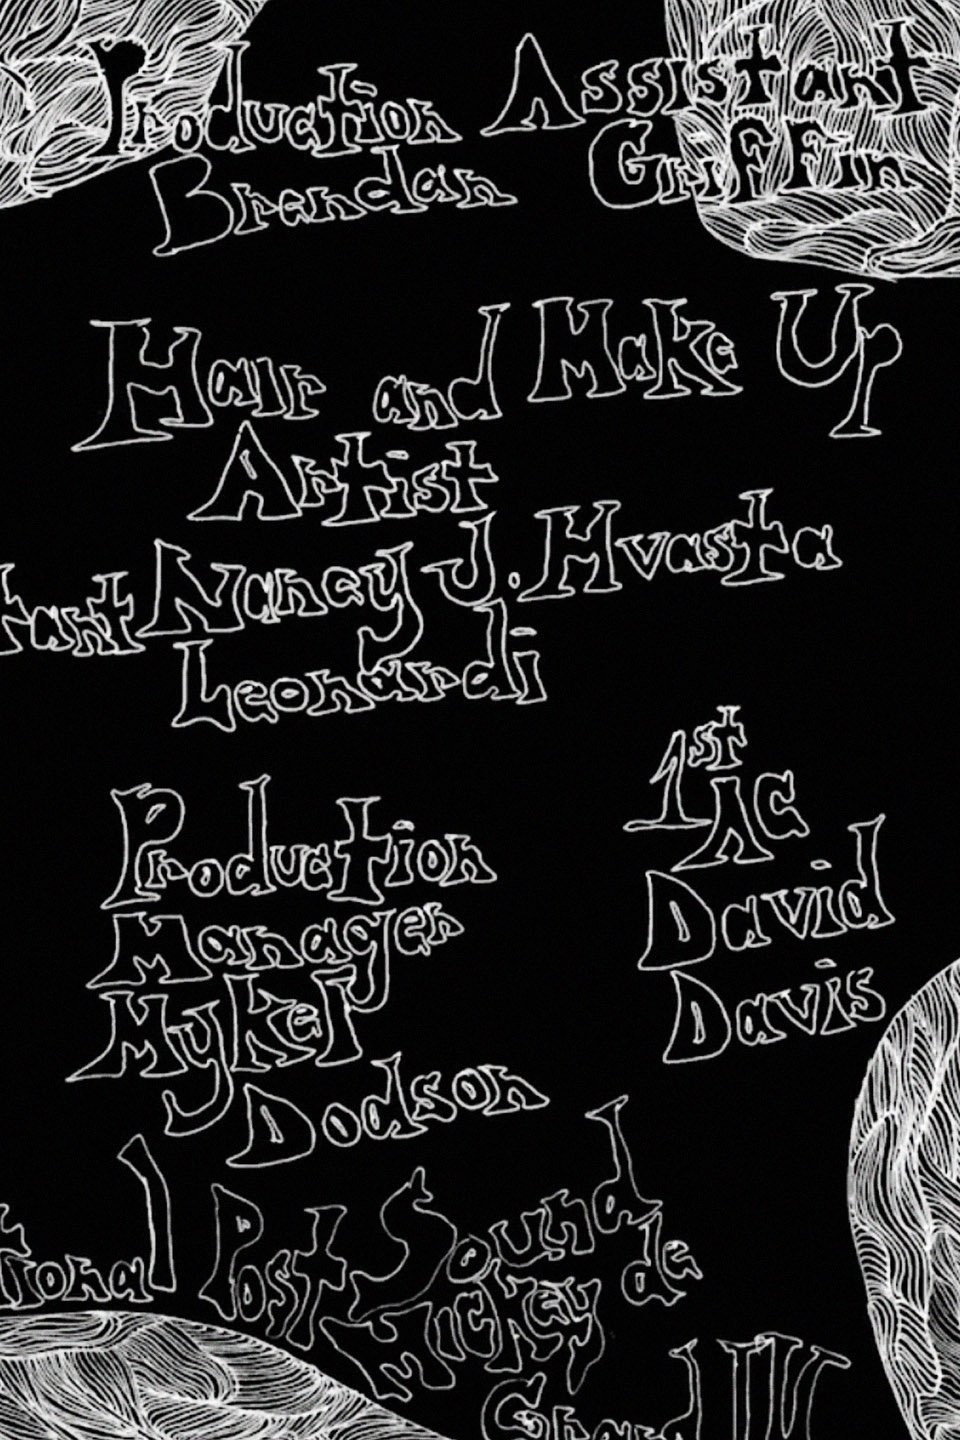 Production Assistant
Brendan Griffin
Hair and Make Up
Artist
Nancy J. Hvasta
Leonardi
1st
AC
David
Davis
Production
Manager
Mykel
Dodson
Post Sound
Mickey de
Grand IV